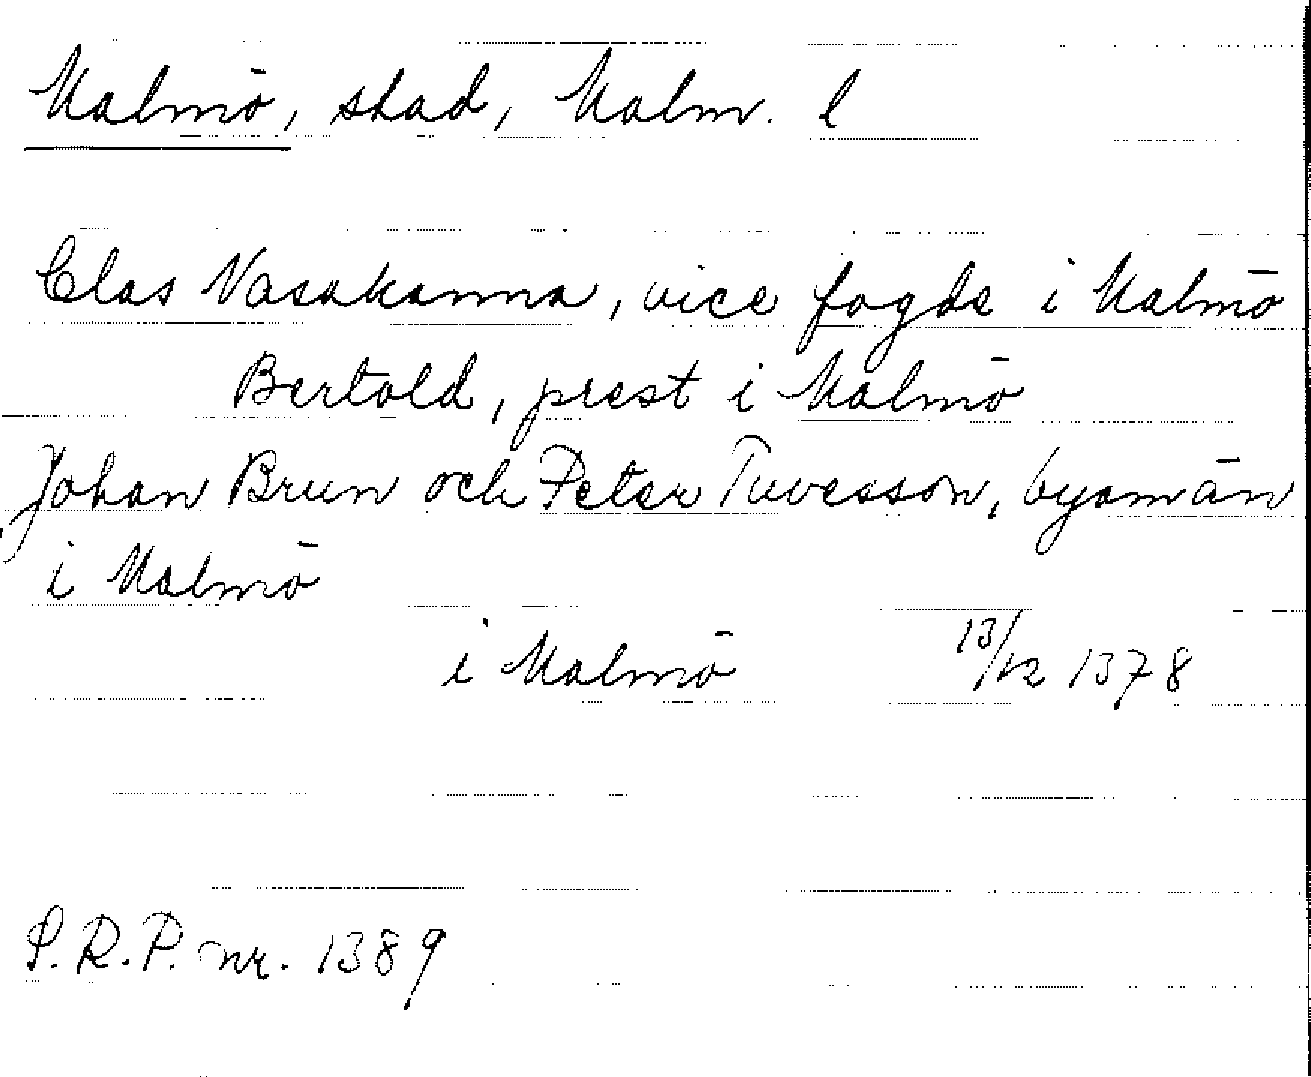 Malmö, stad, Malm. l
Clas Vasakanna, vice fogde i Malmö
Bertold, prest i Malmö
Johan Brun och Peter Tuvesson, byamän
i Malmö
i Malmö 13/12 1378
S.R.P. nr. 1389